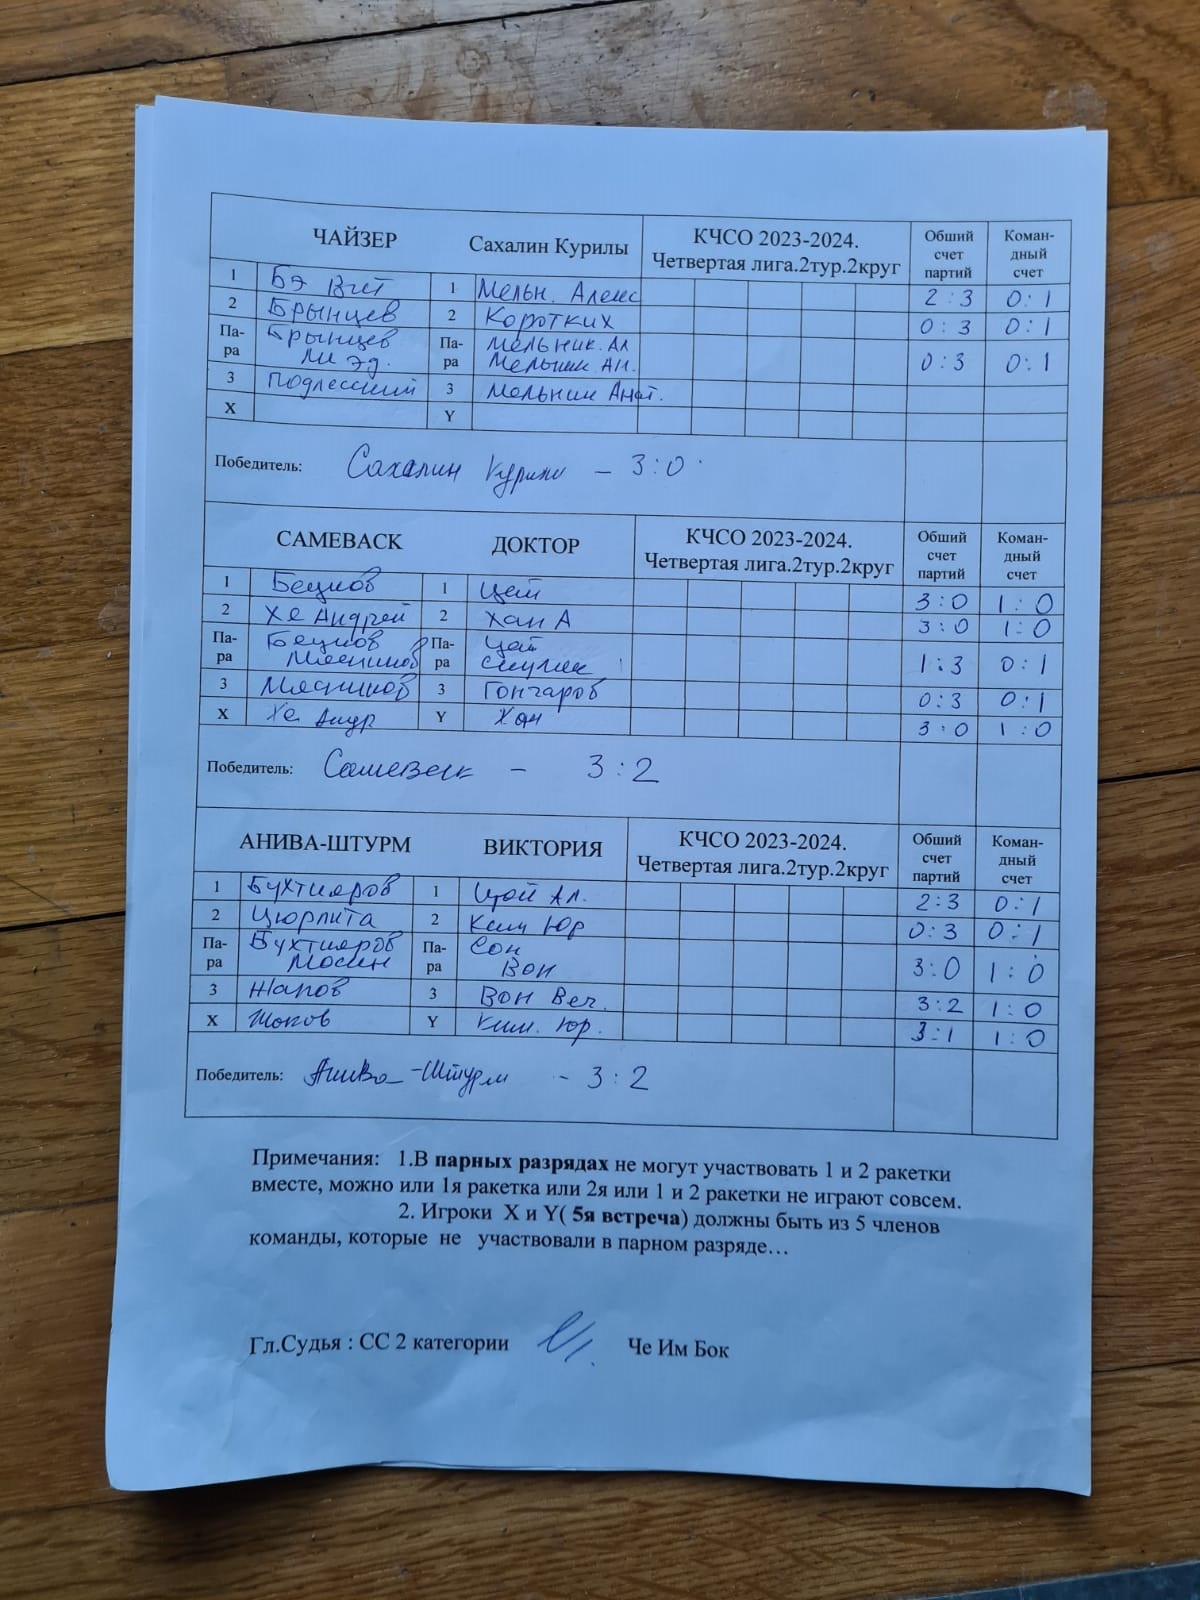 ЧАЙЗЕР Сахалин Курилы КЧСО 2023-2024. Четвертая лига.2тур.2круг Обший счет партий Коман-дный счет
1 Бэ Вит 1 Мельн. Алекс 2:3 0:1
2 Брынцев 2 Коротких 0:3 0:1
Па-ра Брынцев Ли Эд. Па-ра Мельник. Ал Мельник Ан. 0:3 0:1
3 Подлесный 3 Мельник Анат.
X Y
Победитель: Сахалин Курилы – 3:0
САМЕВАСК ДОКТОР КЧСО 2023-2024. Четвертая лига.2тур.2круг Обший счет партий Коман-дный счет
1 1 Цой 3:0 1:0
2 Хе Андрей 2 Хан А 3:0 1:0
Па-ра Мясников Па-ра Цой 1:3 0:1
3 Мясников 3 Гончаров 0:3 0:1
X Хе Андр Y Хан 3:0 1:0
Победитель: Самеваск – 3:2
АНИВА-ШТУРМ ВИКТОРИЯ КЧСО 2023-2024. Четвертая лига.2тур.2круг Обший счет партий Коман-дный счет
1 Бухтияров 1 Цой Ал. 2:3 0:1
2 Цюрпита 2 Ким Юр 0:3 0:1
Па-ра Бухтияров Мосин Па-ра Сон Вон 3:0 1:0
3 Жапов 3 Вон Веч. 3:2 1:0
X Жапов Y Ким. Юр. 3:1 1:0
Победитель: Анива-Штурм – 3:2
Примечания: 1.В парных разрядах не могут участвовать 1 и 2 ракетки
вместе, можно или 1я ракетка или 2я или 1 и 2 ракетки не играют совсем.
2. Игроки X и Y( 5я встреча) должны быть из 5 членов
команды, которые не участвовали в парном разряде…
Гл.Судья : СС 2 категории Че Им Бок